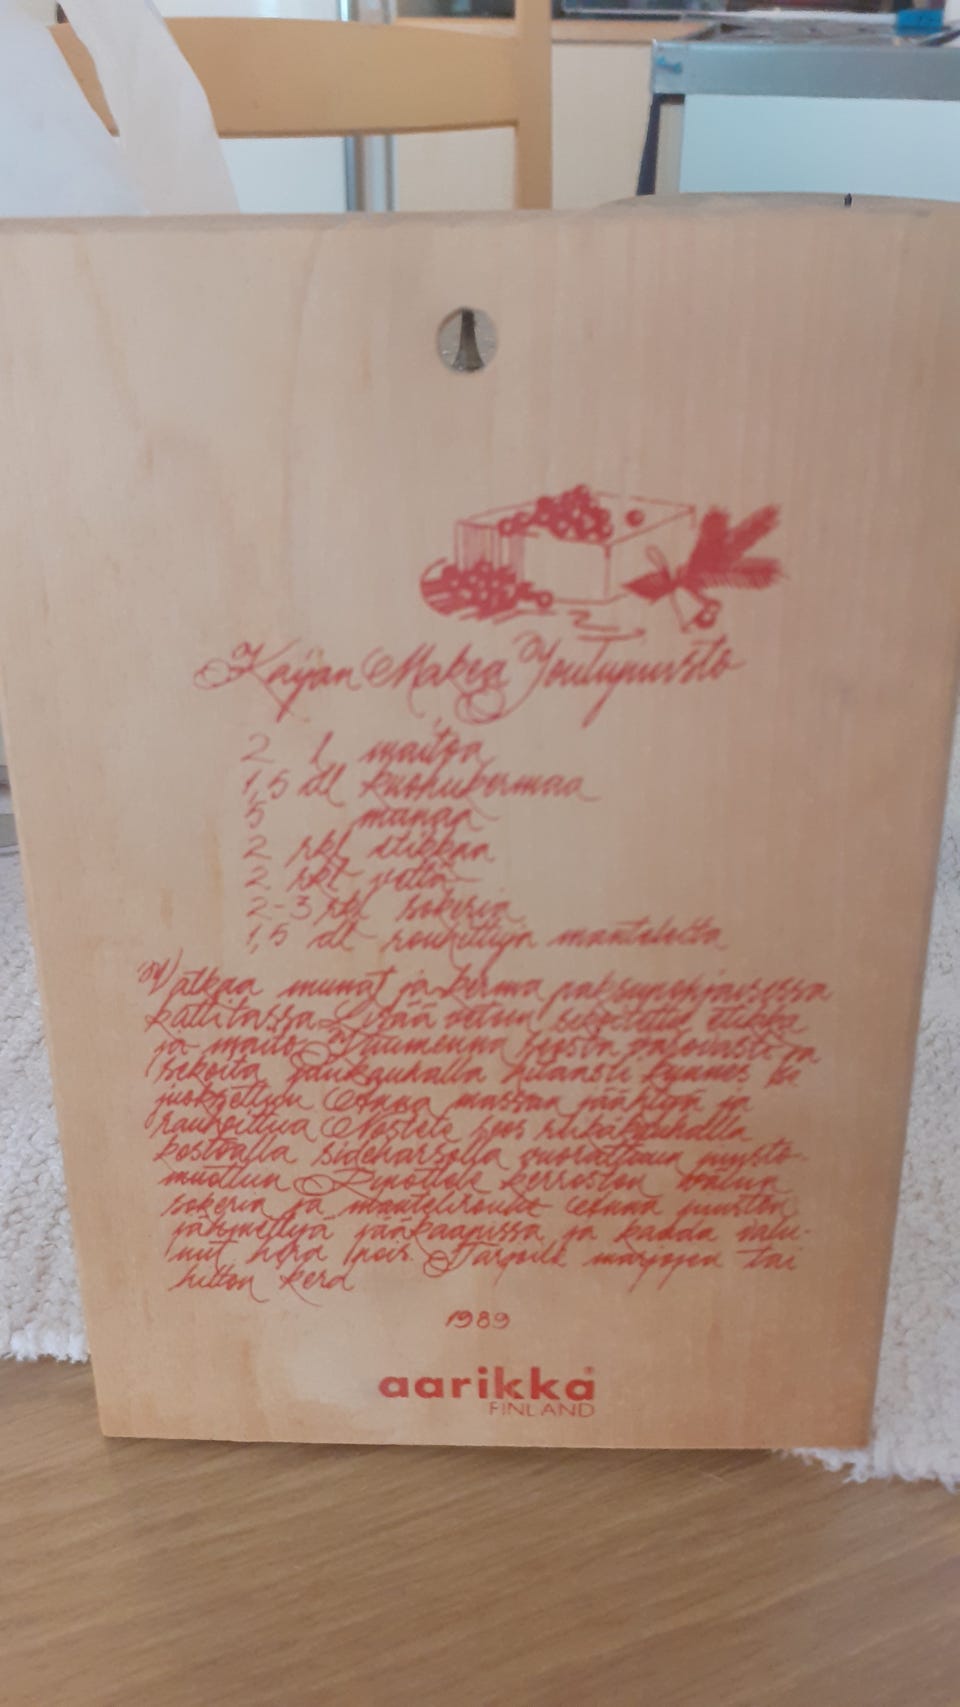 Kaijan Makea Joulujuusto
2 l maitoa
1,5 dl kuohukermaa
5 munaa
2 rkl etikkaa
2 rkl vettä
2-3 rkl sokeria
1,5 dl rouhittuja manteleita
Vatkaa munat ja kerma paksupohjaisessa
kattilassa Lisää veteen sekoitettu etikka
ja maito Kuumenna seosta varovasti ja
sekoita puukauhalla hitaasti kunnes se
juoksettuu Anna massan jäähtyä ja
rauhoittua Nostele seos reikäkauhalla
kostealla sideharsolla vuorattuun juusto-
muottiin Ripottele kerrosten väliin
sokeria ja mantelirouhe Anna juuston
jähmettyä jääkaapissa ja kaada valu-
nut hera pois. Tarjoile marjojen tai
hillon kera
1989
aarikka®
FINLAND